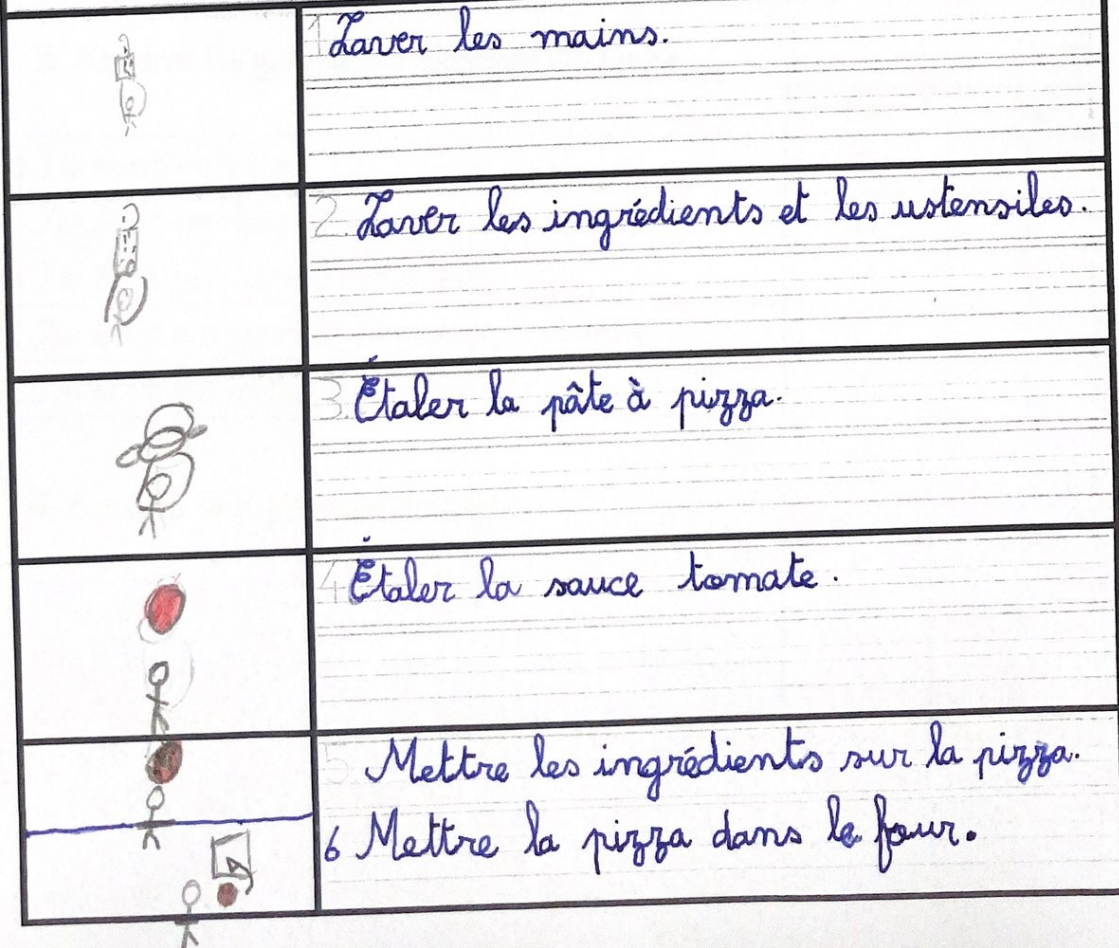 1 Laver les mains.
2. Laver les ingrédients et les ustensiles.
3. Étaler la pâte à pizza.
4. Étaler la sauce tomate.
5. Mettre les ingrédients sur la pizza.
6 Mettre la pizza dans le four.